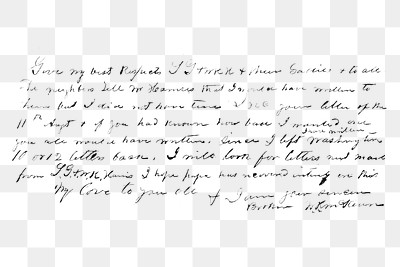 Give my best Respects T. G. & W K & their Ladies & to all
The neighbors Tell Mr that I would have written to
him but I did not have time I rec your letter of the
11th Sept & if you had known how bad I wanted one
you all would have written. Since I left Washington
I have written
10 or 12 letters back. I will look for letters next
from T. G. & W. K. I hope papa has recovered on this
My Love to you all & I am your sincere
Brother